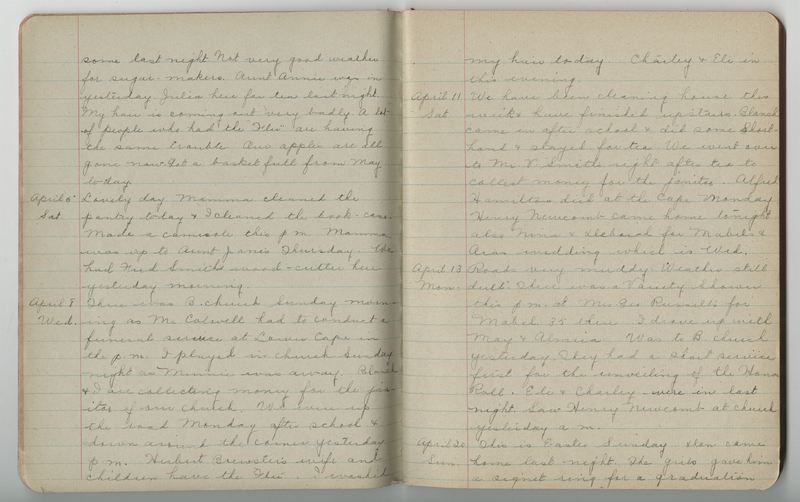 some last night Not very good weather
for sugar-makers. Aunt Annie was in
yesterday. Julia here for tea last night.
My hair is coming out very badly. A lot
of people who had the "Flu" are having
the same trouble. Our apples are all
gone now. Got a basket full from May
to-day.
April 5 Lovely day. Mamma cleaned the
Sat. pantry to-day & I cleaned the book-case.
Made a camisole this p.m. Mamma
was up to Aunt Jane's Thursday. We
had Fred Smith's wood-cutter here
yesterday morning.
April 8 There was B. church Sunday morn-
Wed. ing as Mr. Colwell had to conduct a
funeral service at Lower Cape in
the p.m. I played in church Sunday
night as Minnie was away. Blanch
& I are collecting money for the jan-
itor of our church. We were up
the road Monday after school &
down around the corner yesterday
p.m. Herbert Brewster's wife and
children have the Flu. I washed
my hair to-day. Charley & Eli in
this evening.
April 11 We have been cleaning house this
Sat. week & have finished upstairs. Blanch
came in after school & did some short-
hand & stayed for tea. We went over
to Mr. V. Smith's right after tea to
collect money for the janitor. Alfred
Hamilton died at the Cape Monday.
Henry Newcomb came home tonight
also Nina & Deborah for Mabel's &
wedding which is Wed.
April 13 Roads very muddy. Weather still
Mon. dull. There was a Variety Shower
this p.m. at Mrs. Geo Russell's for
Mabel. 35 there. I drove up with
May & Almira. Was to B. Church
yesterday. They had a short service
first for the unveiling of the Honor
Roll. Eli & Charley were in last
night. Saw Henry Newcomb at church
yesterday a.m.
April 20 This is Easter Sunday. came
Sun. home last night. The girls gave him
a signet ring for a graduation